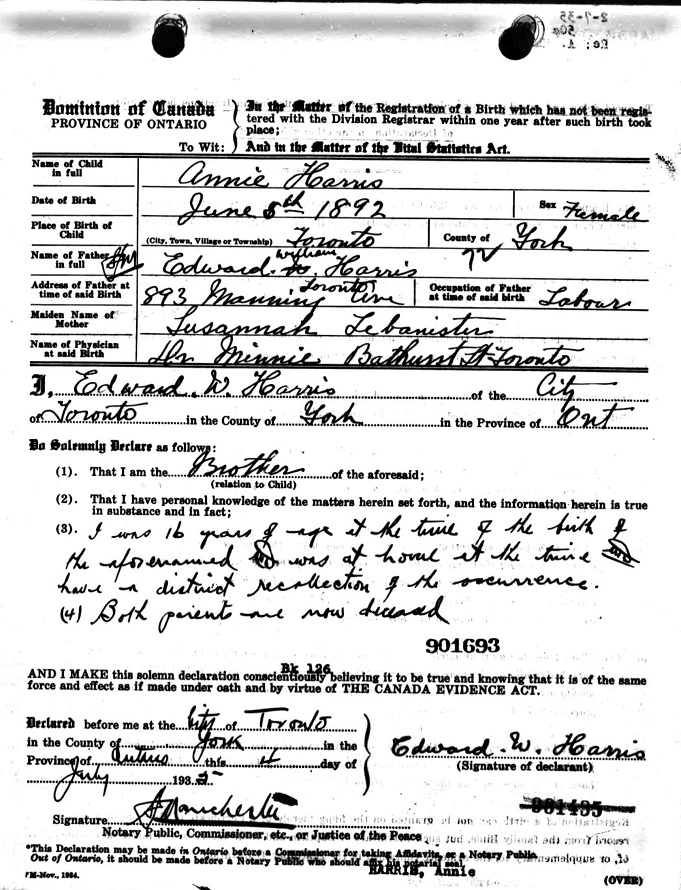 2-7-35
50¢
Re: A.
Dominion of Canada
PROVINCE OF ONTARIO
To Wit:
In the Matter of the Registration of a Birth which has not been regis-
tered with the Division Registrar within one year after such birth took
place;
And in the Matter of the Vital Statistics Act.
Name of Child in full Annie Harris
Date of Birth June 5th 1892 Sex Female
Place of Birth of Child (City, Town, Village or Township) Toronto County of York
Name of Father in full Edward W. Harris
Address of Father at time of said Birth 893 Manning Ave Toronto Occupation of Father at time of said birth Labour
Maiden Name of Mother Susannah Lebanister
Name of Physician at said Birth Dr Minnie Bathurst St Toronto
I, Edward W. Harris of the City
of Toronto in the County of York in the Province of Ont
Do Solemnly Declare as follows:
(1). That I am the Brother of the aforesaid;
(relation to Child)
(2). That I have personal knowledge of the matters herein set forth, and the information herein is true
in substance and in fact;
(3). I was 16 years of age at the time of the birth of
the aforenamed was at home at the time
have a distinct recollection of the occurrence.
(4) Both parents are now deceased
901693
Bk 126
AND I MAKE this solemn declaration conscientiously believing it to be true and knowing that it is of the same
force and effect as if made under oath and by virtue of THE CANADA EVIDENCE ACT.
Declared before me at the City of Toronto
in the County of York in the
Province of this 4 day of
July 1935
Edward. W. Harris
(Signature of declarant)
901495
Signature
Notary Public, Commissioner, etc., or Justice of the Peace
*This Declaration may be made in Ontario before a Commissioner for taking Affidavits, or a Notary Public.
Out of Ontario, it should be made before a Notary Public who should affix his notarial seal.
HARRIS, Annie
7M-Nov., 1934.
(OVER)